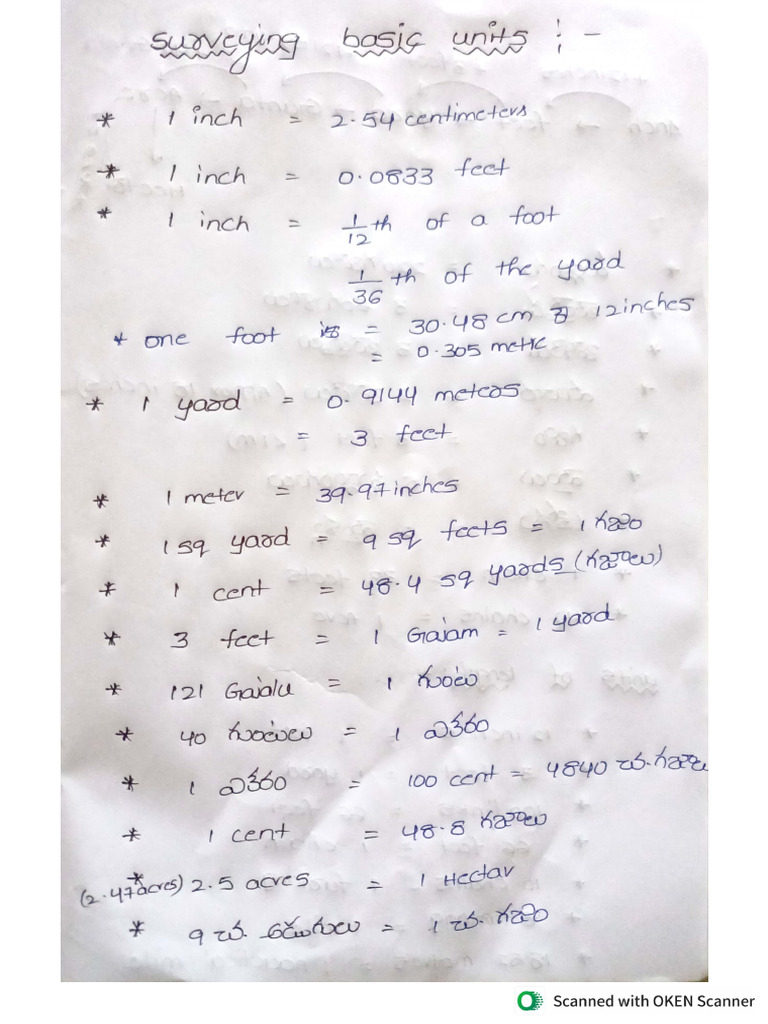 surveying basic units :-
* 1 inch = 2.54 centimeters
* 1 inch = 0.0833 feet
* 1 inch = 1/12 th of a foot
1/36 th of the yard
* one foot is = 30.48 cm 12 inches
= 0.305 metic
* 1 yard = 0.9144 meteos
= 3 feet
* 1 meter = 39.97 inches
* 1 sq yard = 9 sq feets = 1 గజం
* 1 cent = 48.4 sq yards (గజాలు)
* 3 feet = 1 Gajam = 1 yard
* 121 Gajalu = 1 గుంట
* 40 గుంటలు = 1 ఎకరం
* 1 ఎకరం = 100 cent = 4840 చ.గజాలు
* 1 cent = 48.8 గజాలు
* (2.47 acres) 2.5 acres = 1 Hectar
* 9 చ. అడుగులు = 1 చ. గజం
Scanned with OKEN Scanner